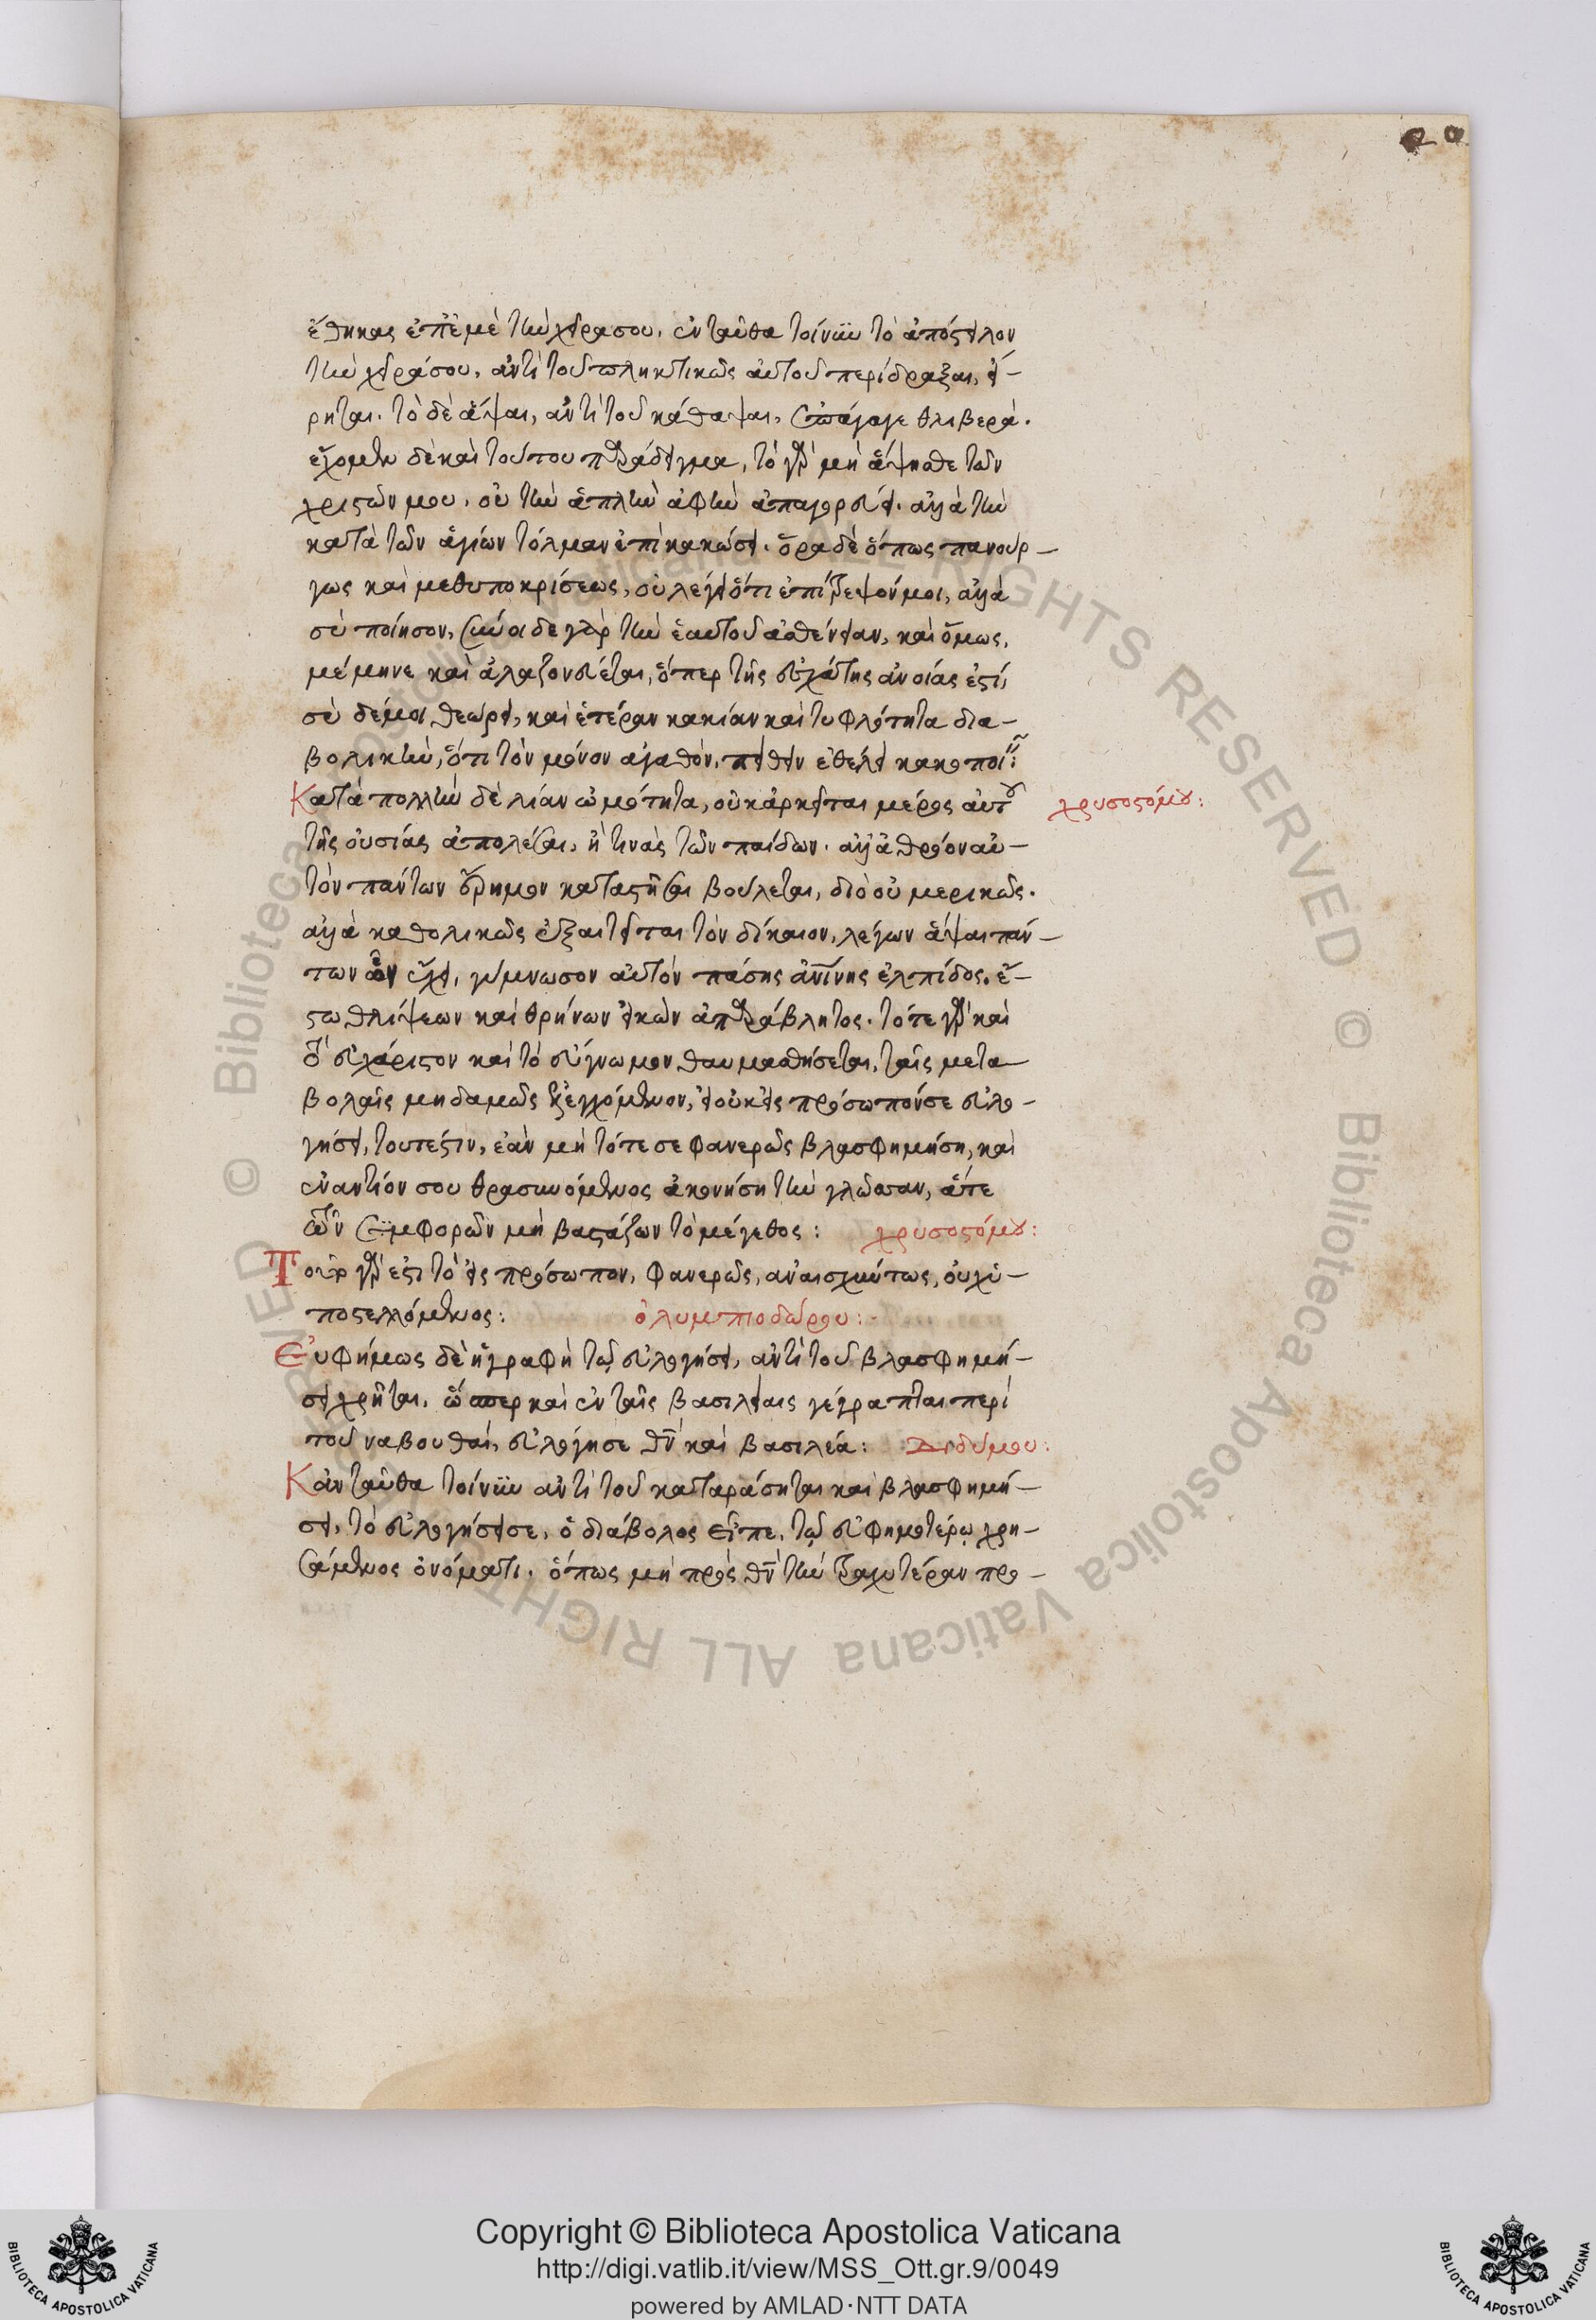 ἔθηκας ἐπ' ἐμὲ τὴν χεῖρα σου. ἐνταῦθα τοίνυν τὸ ἀπόστειλον
τὴν χεῖρά σου, ἀντὶ τοῦ πληκτικῶς αὐτοῦ περίδραξαι, εἴ-
ρηται. τὸ δὲ ἅψαι, ἀντὶ τοῦ κάθαψαι, ἐπάγαγε θλιβερά.
ἔχομεν δὲ καὶ τούτου παράδειγμα, τὸ γὰρ μὴ ἅψησθε τῶν
χριστῶν μου. οὐ τὴν ἁπλῆν ἁφὴν ἀπαγορεύει. ἀλλὰ τὴν
κατὰ τῶν ἁγίων τόλμαν ἐπὶ κακώσει. ὅρα δὲ ὅπως πανούρ-
γως καὶ μεθυποκρίσεως, οὐ λέγει ὅτι ἐπίτρεψόν μοι, ἀλλὰ
σὺ ποίησον, σύνοιδε γὰρ τὴν ἑαυτοῦ ἀσθένειαν, καὶ ὅμως,
μέμηνε καὶ ἀλαζονεύεται, ὅπερ τῆς ἐσχάτης ἀνοίας ἐστί,
σὺ δέ μοι θεώρει, καὶ ἑτέραν κακίαν καὶ τυφλότητα δια-
βολικὴν, ὅτι τὸν μόνον ἀγαθὸν, πείθειν ἐθέλει κακοποιεῖν:
Κατὰ πολλὴν δὲ λίαν ὠμότητα, οὐκ ἀρκεῖται μέρος αὐτοῦ
χρυσοστόμου:
τῆς οὐσίας ἀπολέσαι, ἢ τινὰς τῶν παίδων. ἀλλ' ἀθρόον αὐ-
τὸν πάντων ἔρημον καταστῆσαι βούλεται, διὸ οὐ μερικῶς.
ἀλλὰ καθολικῶς ἐξαιτεῖται τὸν δίκαιον, λέγων ἅψαι πάν-
των ὧν ἔχει, γύμνωσον αὐτὸν πάσης ἀνίνης ἐλπίδος. ἔ-
στω θλίψεων καὶ θρήνων εἰκὼν ἀπαράβλητος. τότε γὰρ καὶ
τὸ εὐχάριστον καὶ τὸ εὔγνωμον θαυμασθήσεται, ταῖς μετα-
βολαῖς μηδαμῶς ἐξελεγχόμενον, εἰ οὐκ εἰς πρόσωπόν σε εὐλο-
γήσει, τουτέστιν, ἐὰν μὴ τότε σε φανερῶς βλασφημήσῃ, καὶ
ἐναντίον σου θρασυνόμενος ἀκονήσῃ τὴν γλῶσσαν, ἅτε
τῶν συμφορῶν μὴ βαστάζων τὸ μέγεθος: χρυσοστόμου:
Τοῦτο γάρ ἐστι τὸ εἰς πρόσωπον, φανερῶς, ἀναισχύντως, οὐχ ὑ-
ποστελλόμενος: ὀλυμπιοδώρου:
Εὐφήμως δὲ ἡ γραφὴ τῷ εὐλογήσει, ἀντὶ τοῦ βλασφημή-
σει χρῆται. ὥσπερ καὶ ἐν ταῖς βασιλείαις γέγραπται περὶ
τοῦ ναβουθαί, εὐλόγησε θν̄ καὶ βασιλέα: Διδύμου:
Κἀνταῦθα τοίνυν ἀντὶ τοῦ καταράσηται καὶ βλασφημή-
σει, τὸ εὐλογήσει σε, ὁ διάβολος εἶπε, τῷ εὐφημοτέρῳ χρη-
σάμενος ὀνόματι. ὅπως μὴ πρὸς θν̄ τὴν τραχυτέραν προ-
Copyright © Biblioteca Apostolica Vaticana
http://digi.vatlib.it/view/MSS_Ott.gr.9/0049
powered by AMLAD·NTT DATA
BIBLIOTECA APOSTOLICA VATICANA
BIBLIOTECA APOSTOLICA VATICANA
© Biblioteca Apostolica Vaticana ALL RIGHTS RESERVED © Biblioteca Apostolica Vaticana ALL RIGHTS RESERVED